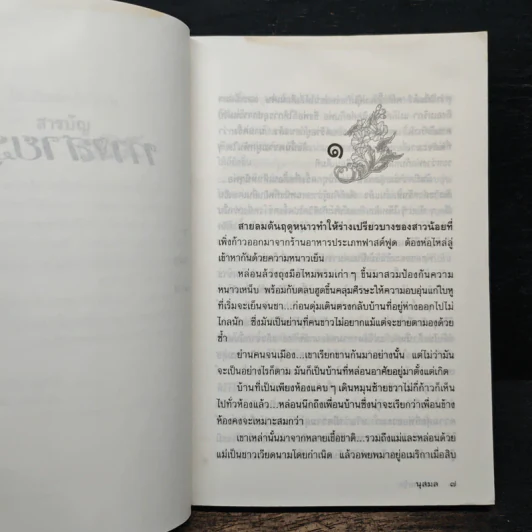 ๑
สายลมต้นฤดูหนาวทำให้ร่างเปรียวบางของสาวน้อยที่
เพิ่งก้าวออกมาจากร้านอาหารประเภทฟาสต์ฟูด ต้องห่อไหล่ลู่
เข้าหากันด้วยความหนาวเย็น
หล่อนล้วงถุงมือไหมพรมเก่าๆ ขึ้นมาสวมป้องกันความ
หนาวเหน็บ พร้อมกับตลบฮูดขึ้นคลุมศีรษะให้ความอบอุ่นแก่ใบหู
ที่เริ่มจะเย็นจนชา...ก่อนดุ่มเดินตรงกลับบ้านที่อยู่ห่างออกไปไม่
ไกลนัก ซึ่งมันเป็นย่านที่คนขาวไม่อยากแม้แต่จะชายตามองด้วย
ซ้ำ
ย่านคนจนเมือง...เขาเรียกขานกันมาอย่างนั้น แต่ไม่ว่ามัน
จะเป็นอย่างไรก็ตาม มันก็เป็นบ้านที่หล่อนอาศัยอยู่มาตั้งแต่เกิด
บ้านที่เป็นเพียงห้องแคบๆ เดินหมุนซ้ายขวาไม่กี่ก้าวก็เห็น
ไปทั่วห้องแล้ว...หล่อนนึกถึงเพื่อนบ้านซึ่งน่าจะเรียกว่าเพื่อนข้าง
ห้องคงจะเหมาะสมกว่า
เขาเหล่านั้นมาจากหลายเชื้อชาติ...รวมถึงแม่และหล่อนด้วย
แม่เป็นชาวเวียดนามโดยกำเนิด แล้วอพยพมาอยู่อเมริกาเมื่อสิบ
นุสมล ๗